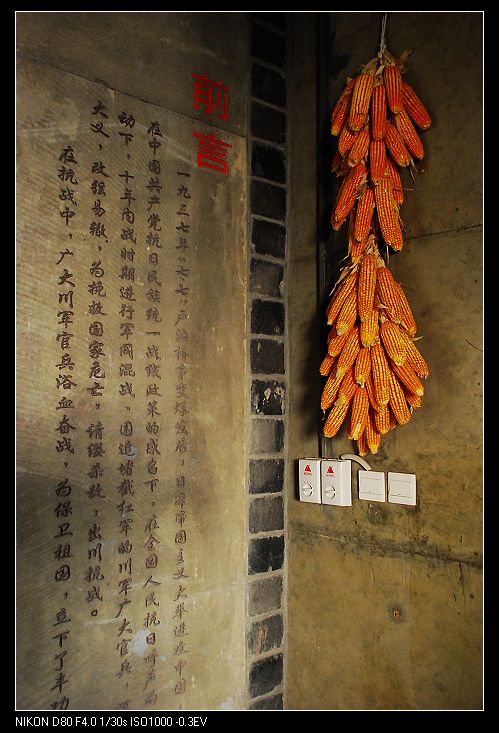 前言
一九三七年“七七”卢沟桥事变爆发后，日本帝国主义大举进攻中国。
在中国共产党抗日民族统一战线政策的感召下，在全国人民抗日呼声的
动下，十年内战时期进行军阀混战、围追堵截红军的川军广大官兵，
大义，改弦易辙，为挽救国家危亡，请缨杀敌，出川抗战。
在抗战中，广大川军官兵浴血奋战，为保卫祖国，立下了丰功
NIKON D80 F4.0 1/30s ISO1000 -0.3EV